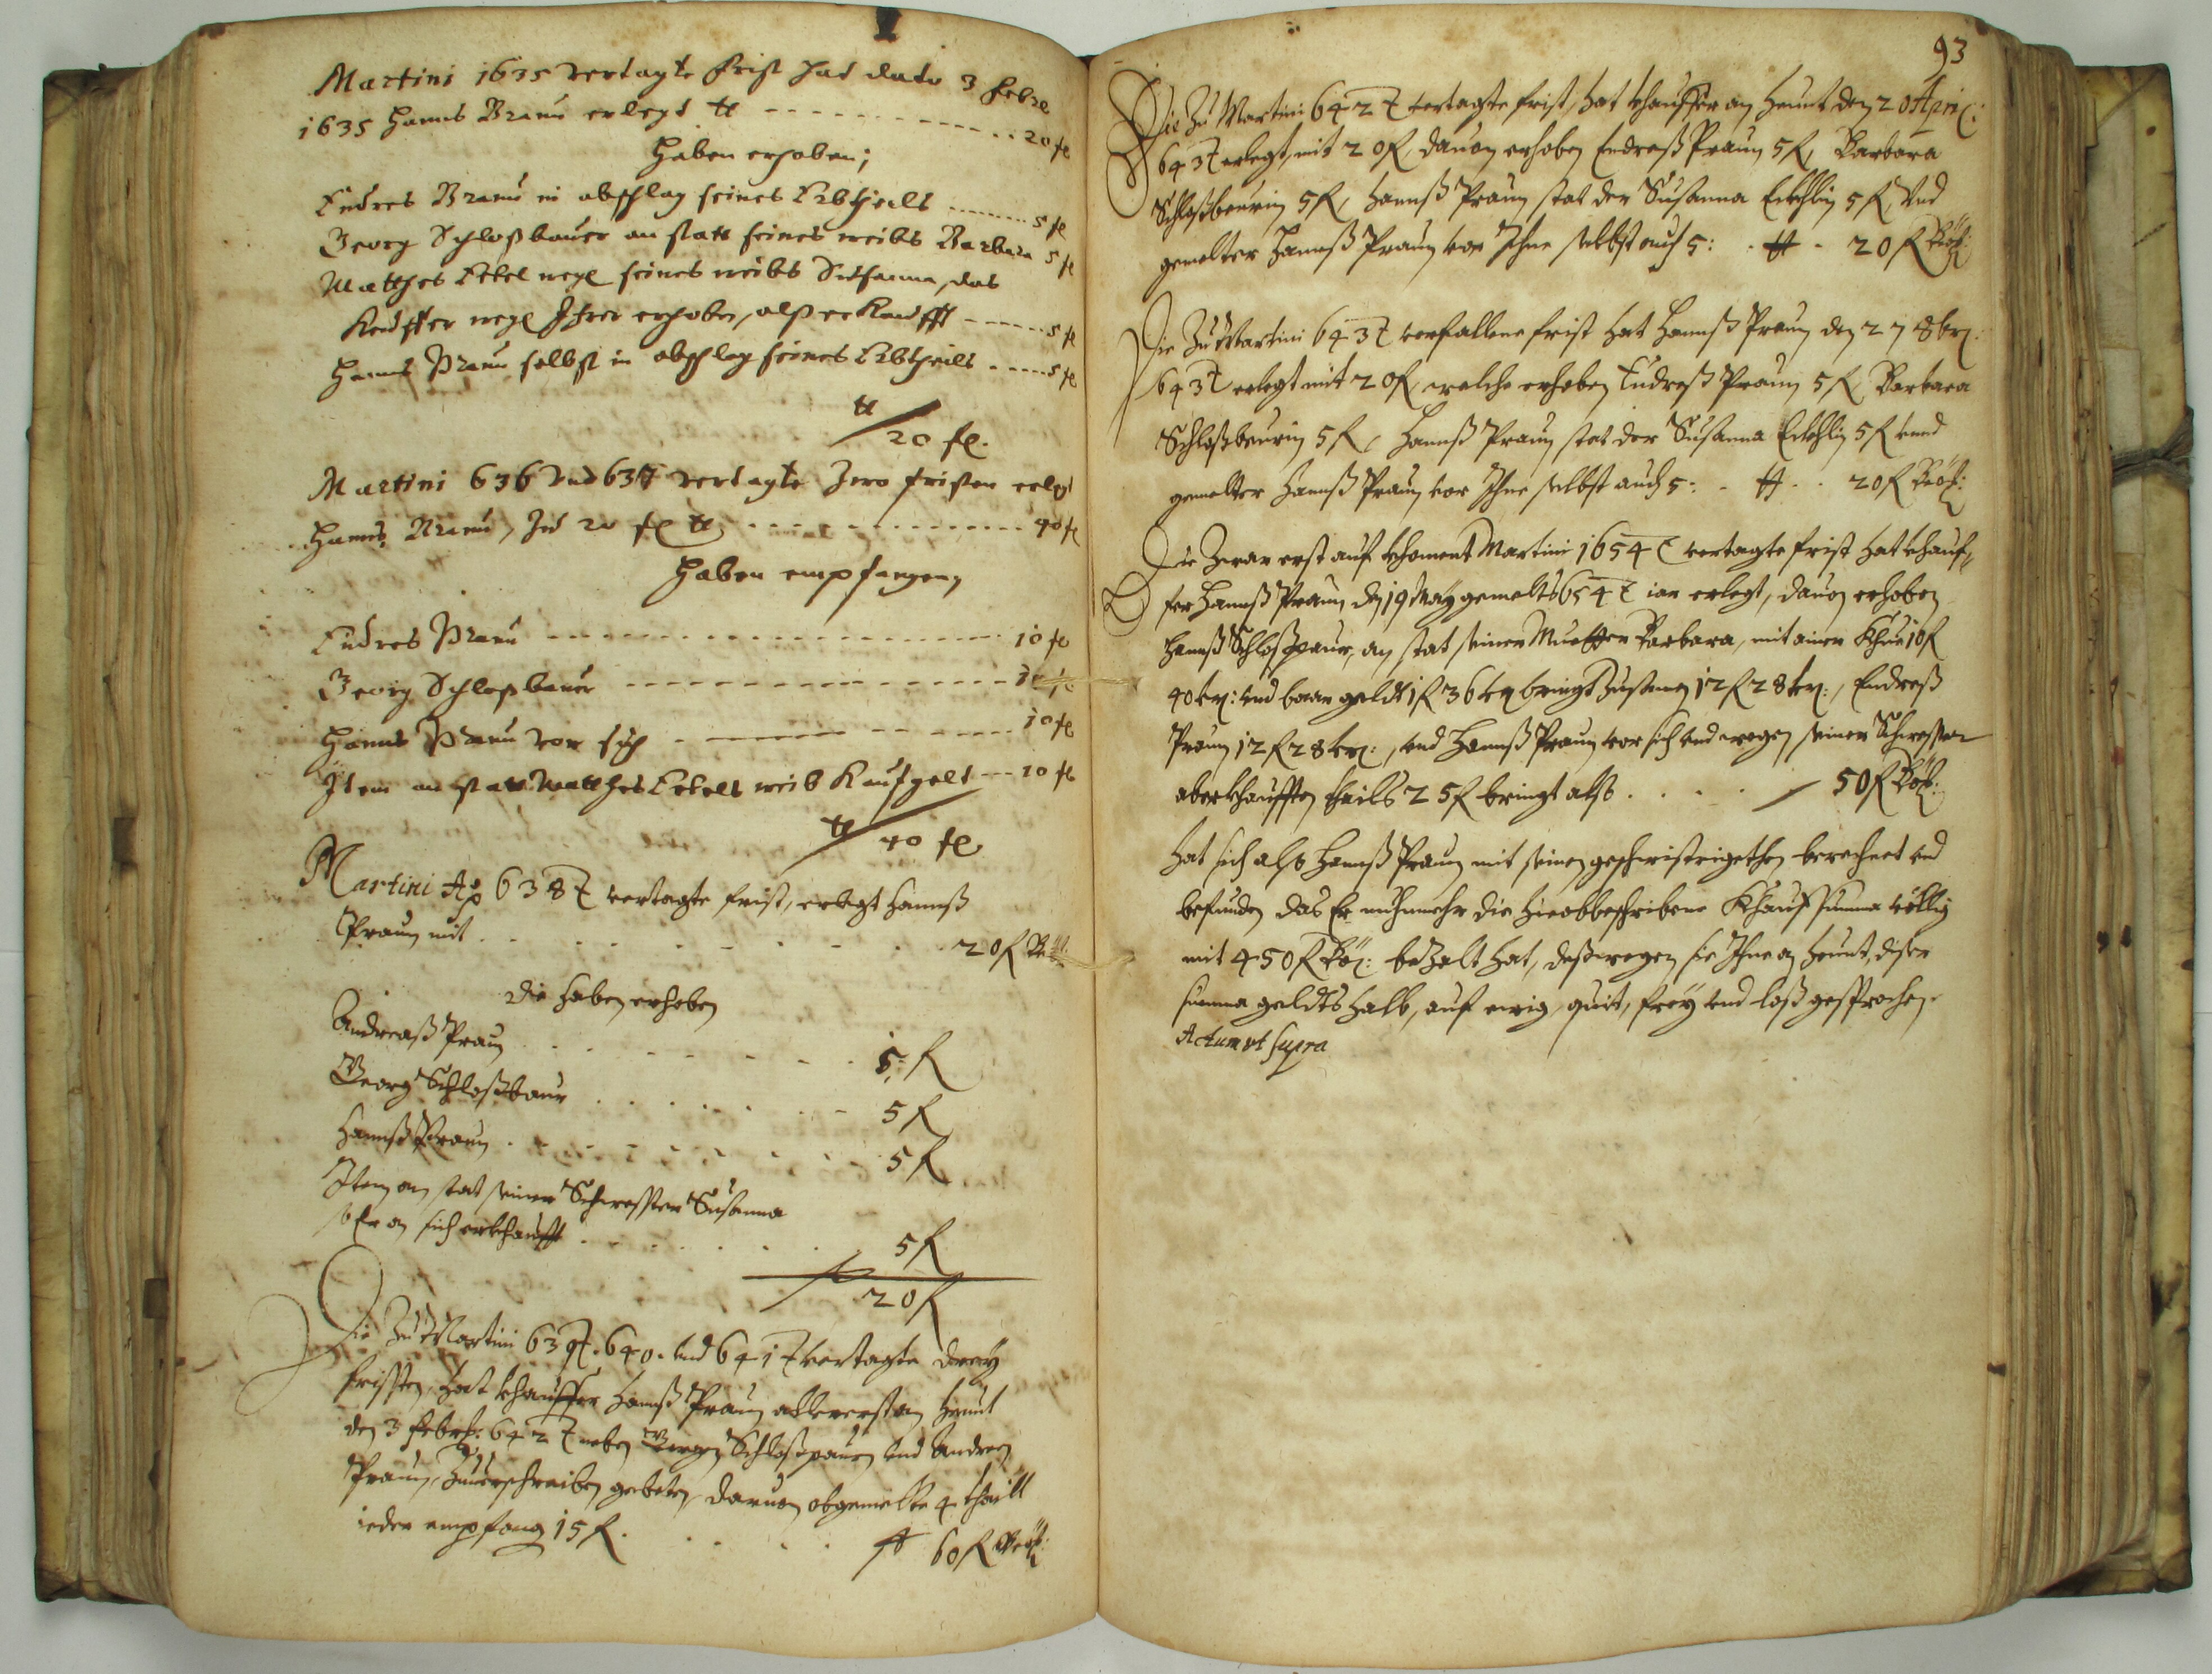 Martini 1635 vertagte Frist hat dato 3 Febr
1635 Hanns Braun erlegt 20 fl
Haben erhoben;
Endres Braun in abschlag seines Erbtheils 5 fl
Georg Schloßbauer an statt seines weibs Barbara 5 fl
Matthes Eckel wege seines weibs Susanna, das
Keuffer wege Ihrer erhoben, alß er Kaufft 5 fl
Hanns Braun selbst in abschlag seines Erbtheils 5 fl
20 fl.
Martini 636 und 637 vertagte zwo fristen erlegt
Hanns Braun, zu 20 fl 40 fl
Haben empfangen,
Endres Braun 10 fl
Georg Schloßbauer
Hanns Braun vor sich 10 fl
Item an statt Matthes Eckels weib Kaufgelt 10 fl
40 fl
Martini Ao 638 t vertagte frist, erlegt Hannß
Praun mit 20 f
die haben erhoben
Andreaß Praun 5 f
Georg Schloßbaur 5 f
Hannß Praun 5 f
Item an stat seiner Schwesster Susanna
so Er an sich erkhaufft 5 f
20 f
Die zu Martini 639 t. 640. und 641 t vertagte drey
fristen, hat khauffer Hannß Praun allererst an heunt
den 3 Febr: 642 t neben Georgen Schloßpaurn und Andreen
Praun, zuuerschreiben gebeten, daruon obgemelte 4 thaill
ieder empfang 15 f. 60 f
93
Die zu Martini 642 t vertagte frist, hat khauffer an heunt den 20 April:
643 t erlegt, mit 20 f, dauon erhoben Endreß Praun 5 f, Barbara
Schloßbeurin 5 f, Hannß Praun stat der Susanna Eckhlin 5 f, und
gemelter Hannß Praun vor Ihne selbst auch 5: 20 f Böh:
Die zu Martini 643 t verfallene frist hat Hannß Praun den 27 8br:
643 t erlegt mit 20 f, welche erhoben Endreß Praun 5 f, Barbara
Schloßbeurin 5 f, Hannß Praun stat der Susanna Eckhlin 5 f unnd
gemelter Hannß Praun vor Ihne selbst auch 5: 20 f Böh:
Die zwar erst auf khoment Martini 1654 t vertagte frist hat khauf-
fer Hannß Praun den 19 May gemelts 654 t iar erlegt, dauon erhoben
Hannß Schloßpaur, an stat seiner Muetter Barbara, mit ainer Khue 10 f
40 kr: und baar geldt 1 f 36 kr bringt zusamen 12 f 28 kr:, Endreß
Praun 12 f 28 kr:, und Hannß Praun vor sich und wegen seiner Schwesster
aberkhaufften thails 25 f bringt alß 50 f Böh:
Hat sich also Hannß Praun mit seinen geschwistrigethen berechnet und
befunden das Er nuhnmehr die hieobbeschribene Khauf summa völlig
mit 450 f Böh: bezalt hat, deßwegen sie Ihne an heunt, diser
summa geldts halb, auf ewig, quit, frey und loß gesprochen.
Actum ut supra